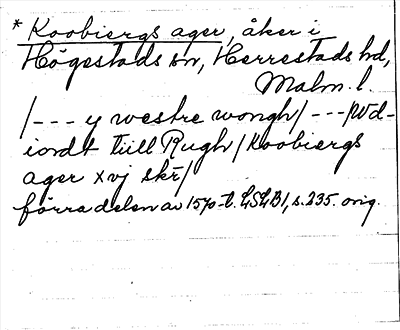 * Koobiergs ager, åker i
Högestads sn, Herrestads hd,
Malm. l.
/--- y westre wongh/ ---/Wd-
iordt tiill Rugh/Koobiergs
ager xvj skr/
förra delen av 1570-t. LSLB1, s. 235. orig.